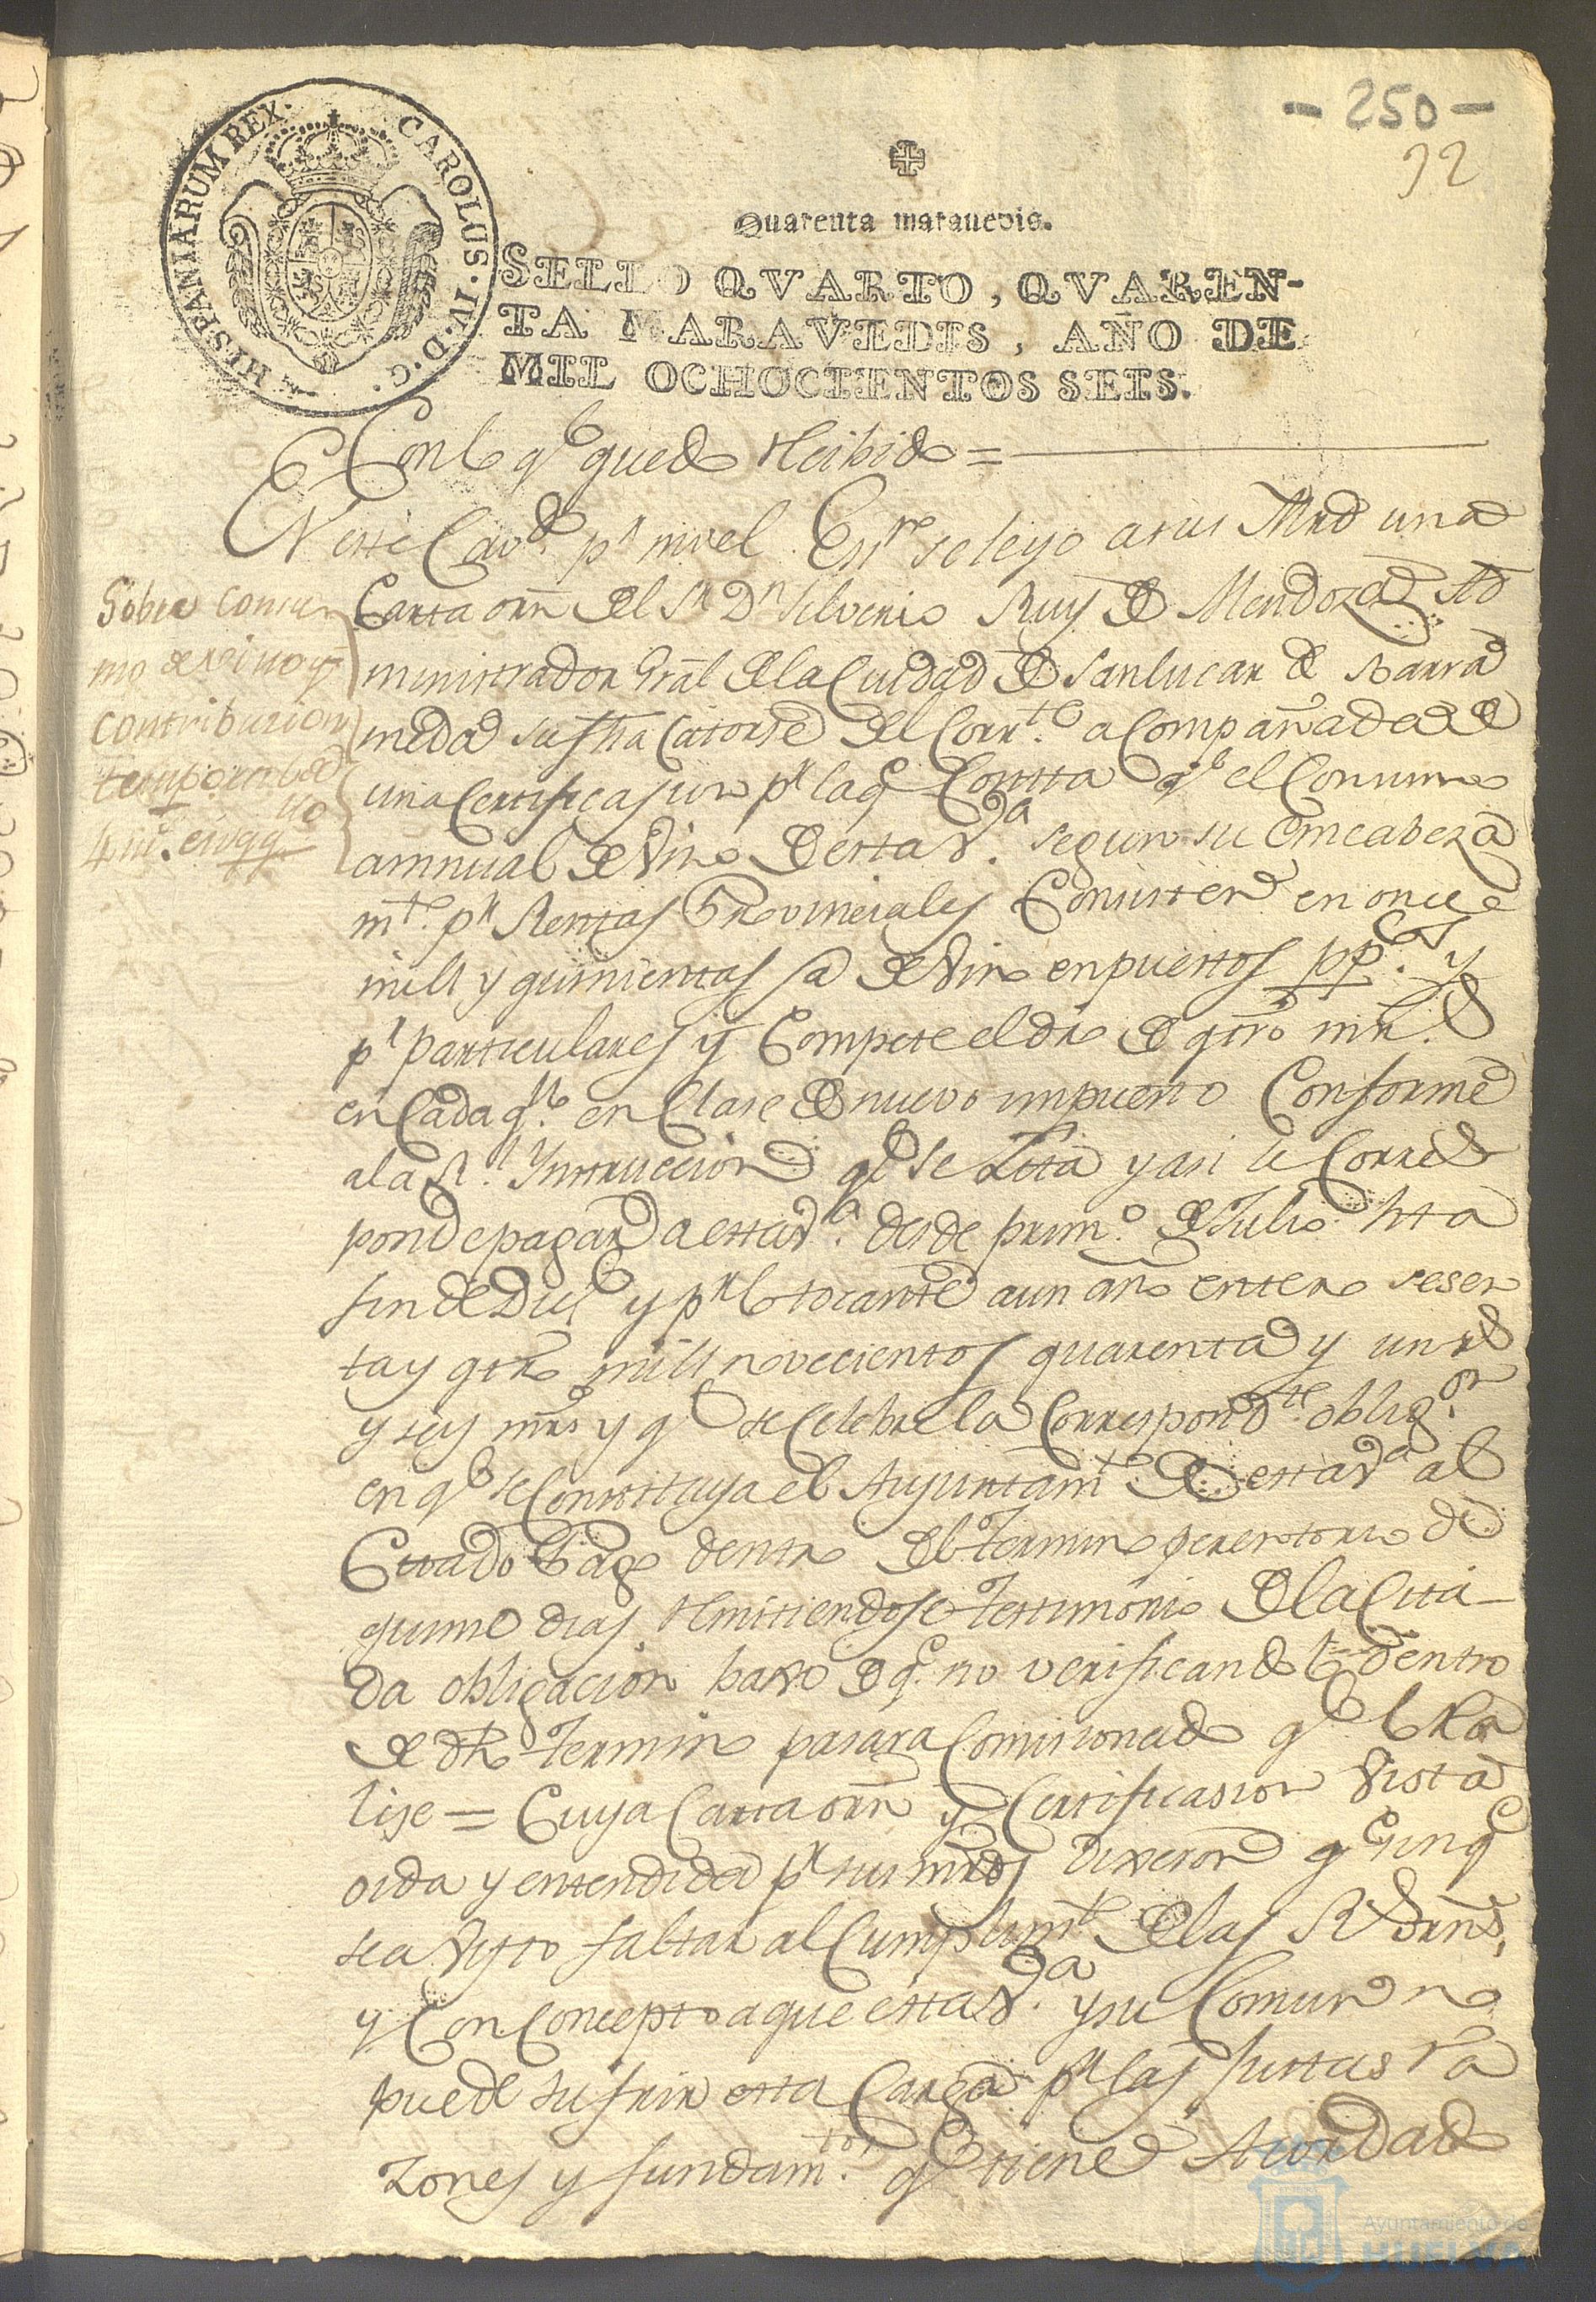 - 250 -
92
HISPANIARUM REX. CAROLUS. IV. D. G.
Quarenta marauedis.
SELLO QVARTO, QVAREN-
TA MARAVEDIS, AÑO DE
MIL OCHOCIENTOS SEIS.
Con lo qe quedo Recibido =
En este Cavdo pr mi el Essno se leyo a sus Mrds una
Sobre consu
mo de vino y
contribucion
Carta orñ del Sr Dn Silverio Ruiz de Mendoza Ad
ministrador Gral de la Ciudad de Sanlucar de Barra
meda su fha Catorse del Corrte acompañada de
una Certificasion pr la qe Consta qe el Consumo
annual de Vino de esta Va segun su encabeza
mto pr Rentas Provinciales Consiste en once
mill y quinientas @ de Vino en puestos ppcos y
pr particulares y Compete el dro de qtro mrs
en Cada qllo en Clase de nuevo impuesto Conforme
a la Rl Ynstruccion qe se Zita y asi le Corres
ponde pagar a esta Va desde primo de Julio hta
fin de Dice y pr lo tocante a un año entero sesen
ta y qtro mill novecientos quarenta y un rs
y seis mrs y qe se Celebre la Correspondte obligon
en qe se Constituya el Ayuntamto de esta Va al
Citado Pago dentro del termino perentorio de
quince dias Remitiendose testimonio de la Cita-
da obligacion baxo de qe no verificandolo dentro
de dho termino pasara Comisionado qe lo Rea
lise = Cuya Carta orñ y Certificasion Vista
oida y entendida pr sus mrds Dixeron qe sin qe
sea Visto faltar al Cumplimto de las Rs orñs,
y Con Concepto a que esta Va y su Comun no
puede sufrir esta Carga pr las Justas ra
zones y fundamtos qe tiene Acordado
Ayuntamiento de
HUELVA